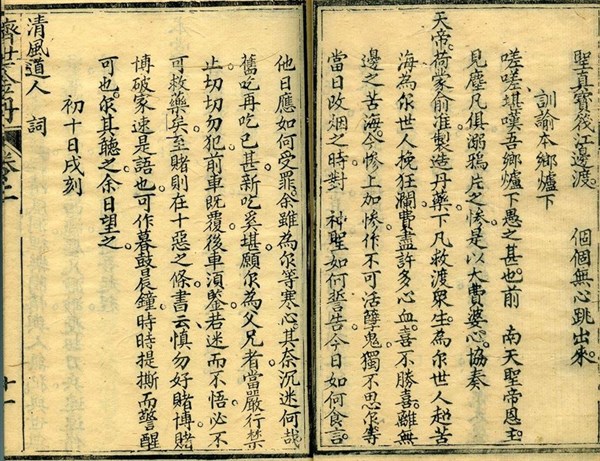 聖真寶筏江邊渡。 個個無心跳出來。
訓諭本鄉爐下
嗟嗟堪嘆吾鄉爐下愚之甚也。前 南天聖帝恩主。
見塵凡俱溺鴉片之慘。是以大費婆心。協奏
天帝。荷蒙俞准製造丹藥。下凡救渡眾生。為尔世人超苦
海為尔世人挽狂瀾。費盡許多心血。喜不勝喜。離無
邊之苦海。今慘上加慘。作不可活孽鬼。獨不思尔等
當日改烟之時對 神聖如何誓告。今日如何食言。
他日應如何受罪。余雖為尔等寒心。其奈沉迷何哉
舊吃再吃已甚。新吃奚堪。願尔為父兄者。當嚴行禁
止。切切勿犯。前車既覆。後車須鑒。若迷而不悟。必不
可救藥矣。至賭則在十惡之條。書云慎勿好賭博。賭
博破家。速是語也。可作暮鼓晨鐘。時時提撕而警醒
可也。尔其聽之。余日望之。
初十日戌刻
清風道人 詞
濟世金丹 卷二 十一